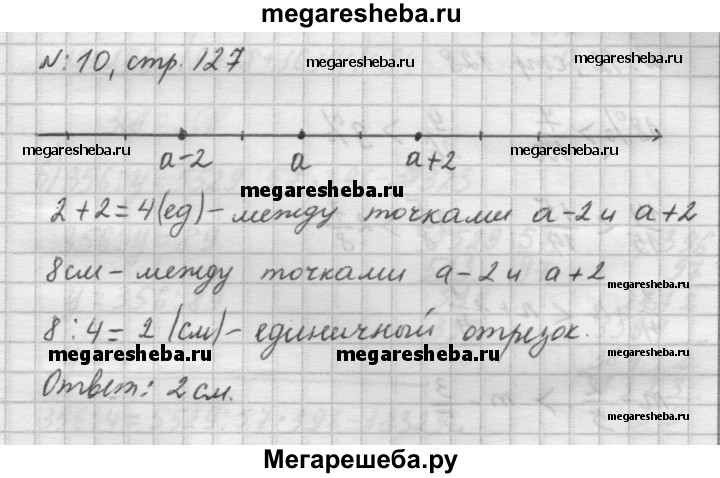 megaresheba.ru
N: 10, стр. 127 megaresheba.ru megaresheba.ru
megaresheba.ru a-2 a a+2 megaresheba.ru
megaresheba.ru
2+2=4(ед)-между точками a-2 и a+2
8см-между точками a-2 и a+2
megaresheba.ru
8:4=2(см)-единичный отрезок.
megaresheba.ru megaresheba.ru megaresheba.ru
Ответ: 2см.
megaresheba.ru
Мегарешеба.ру